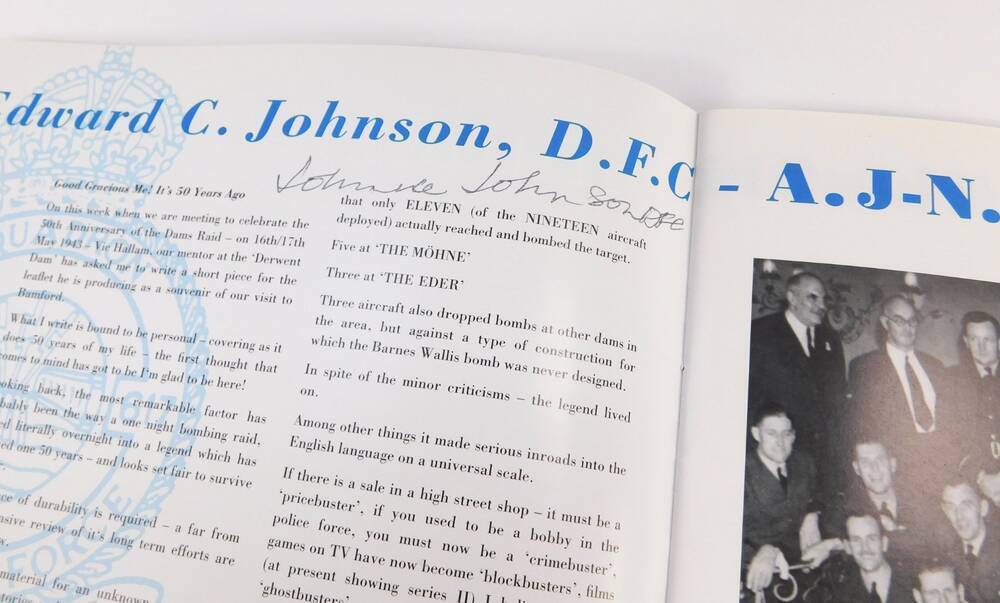 Edward C. Johnson, D.F.C - A.J-N.
Johnnie Johnson DFC
Good Gracious Me! It's 50 Years Ago
On this week when we are meeting to celebrate the
50th Anniversary of the Dams Raid – on 16th/17th
May 1943 – Vic Hallam, our mentor at the 'Derwent
Dam' has asked me to write a short piece for the
leaflet he is producing as a souvenir of our visit to
Bamford.
What I write is bound to be personal – covering as it
does 50 years of my life – the first thought that
comes to mind has got to be I'm glad to be here!
ooking back, the most remarkable factor has
bably been the way a one night bombing raid,
ed literally overnight into a legend which has
ed one 50 years – and looks set fair to survive
ce of durability is required – a far from
nsive review of it's long term efforts are
w.
material for an unknown
that only ELEVEN (of the NINETEEN aircraft
deployed) actually reached and bombed the target.
Five at 'THE MÖHNE'
Three at 'THE EDER'
Three aircraft also dropped bombs at other dams in
the area, but against a type of construction for
which the Barnes Wallis bomb was never designed.
In spite of the minor criticisms – the legend lived
on.
Among other things it made serious inroads into the
English language on a universal scale.
If there is a sale in a high street shop – it must be a
'pricebuster', if you used to be a bobby in the
police force, you must now be a 'crimebuster',
games on TV have now become 'blockbusters', films
(at present showing series II)
'ghostbusters'